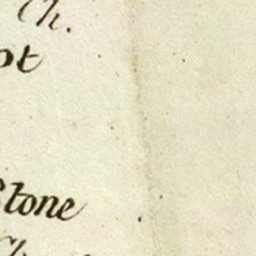 Ch.
ot
Stone